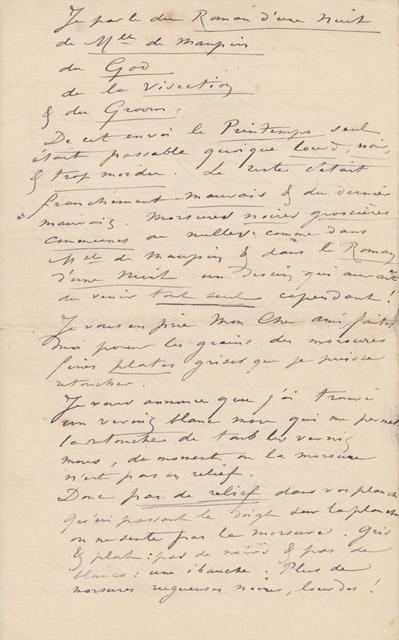 Je parle du Roman d'une Nuit
de Mlle de Maupin
du God
de la Visection
& du Groom.
De cet envoi le Printemps seul
était passable quoique lourd, noir,
& trop mordu. Le reste était
franchement mauvais & du dernier
mauvais. Morsures noires grossières
communes ou nulles comme dans
Mlle de Maupin & dans le Roman
d'une Nuit un Dessin qui aurait
du venir tout seul cependant!
Je vous en prie Mon Cher ami faites
moi pour les grains des morsures
fines plates grises que je puisse
retoucher.
Je vous annonce que j'ai trouvé
un vernis blanc mou qui me permet
la retouche de tous les vernis
mous, du moment où la morsure
n'est pas en relief.
Donc pas de relief dans vos planches
qu'en passant le doigt sur la planche
on ne sente pas la morsure. Gris
& plat: pas de noirs & pas de
blancs: une ébauche. Plus de
morsures rugueuses noires, lourdes!